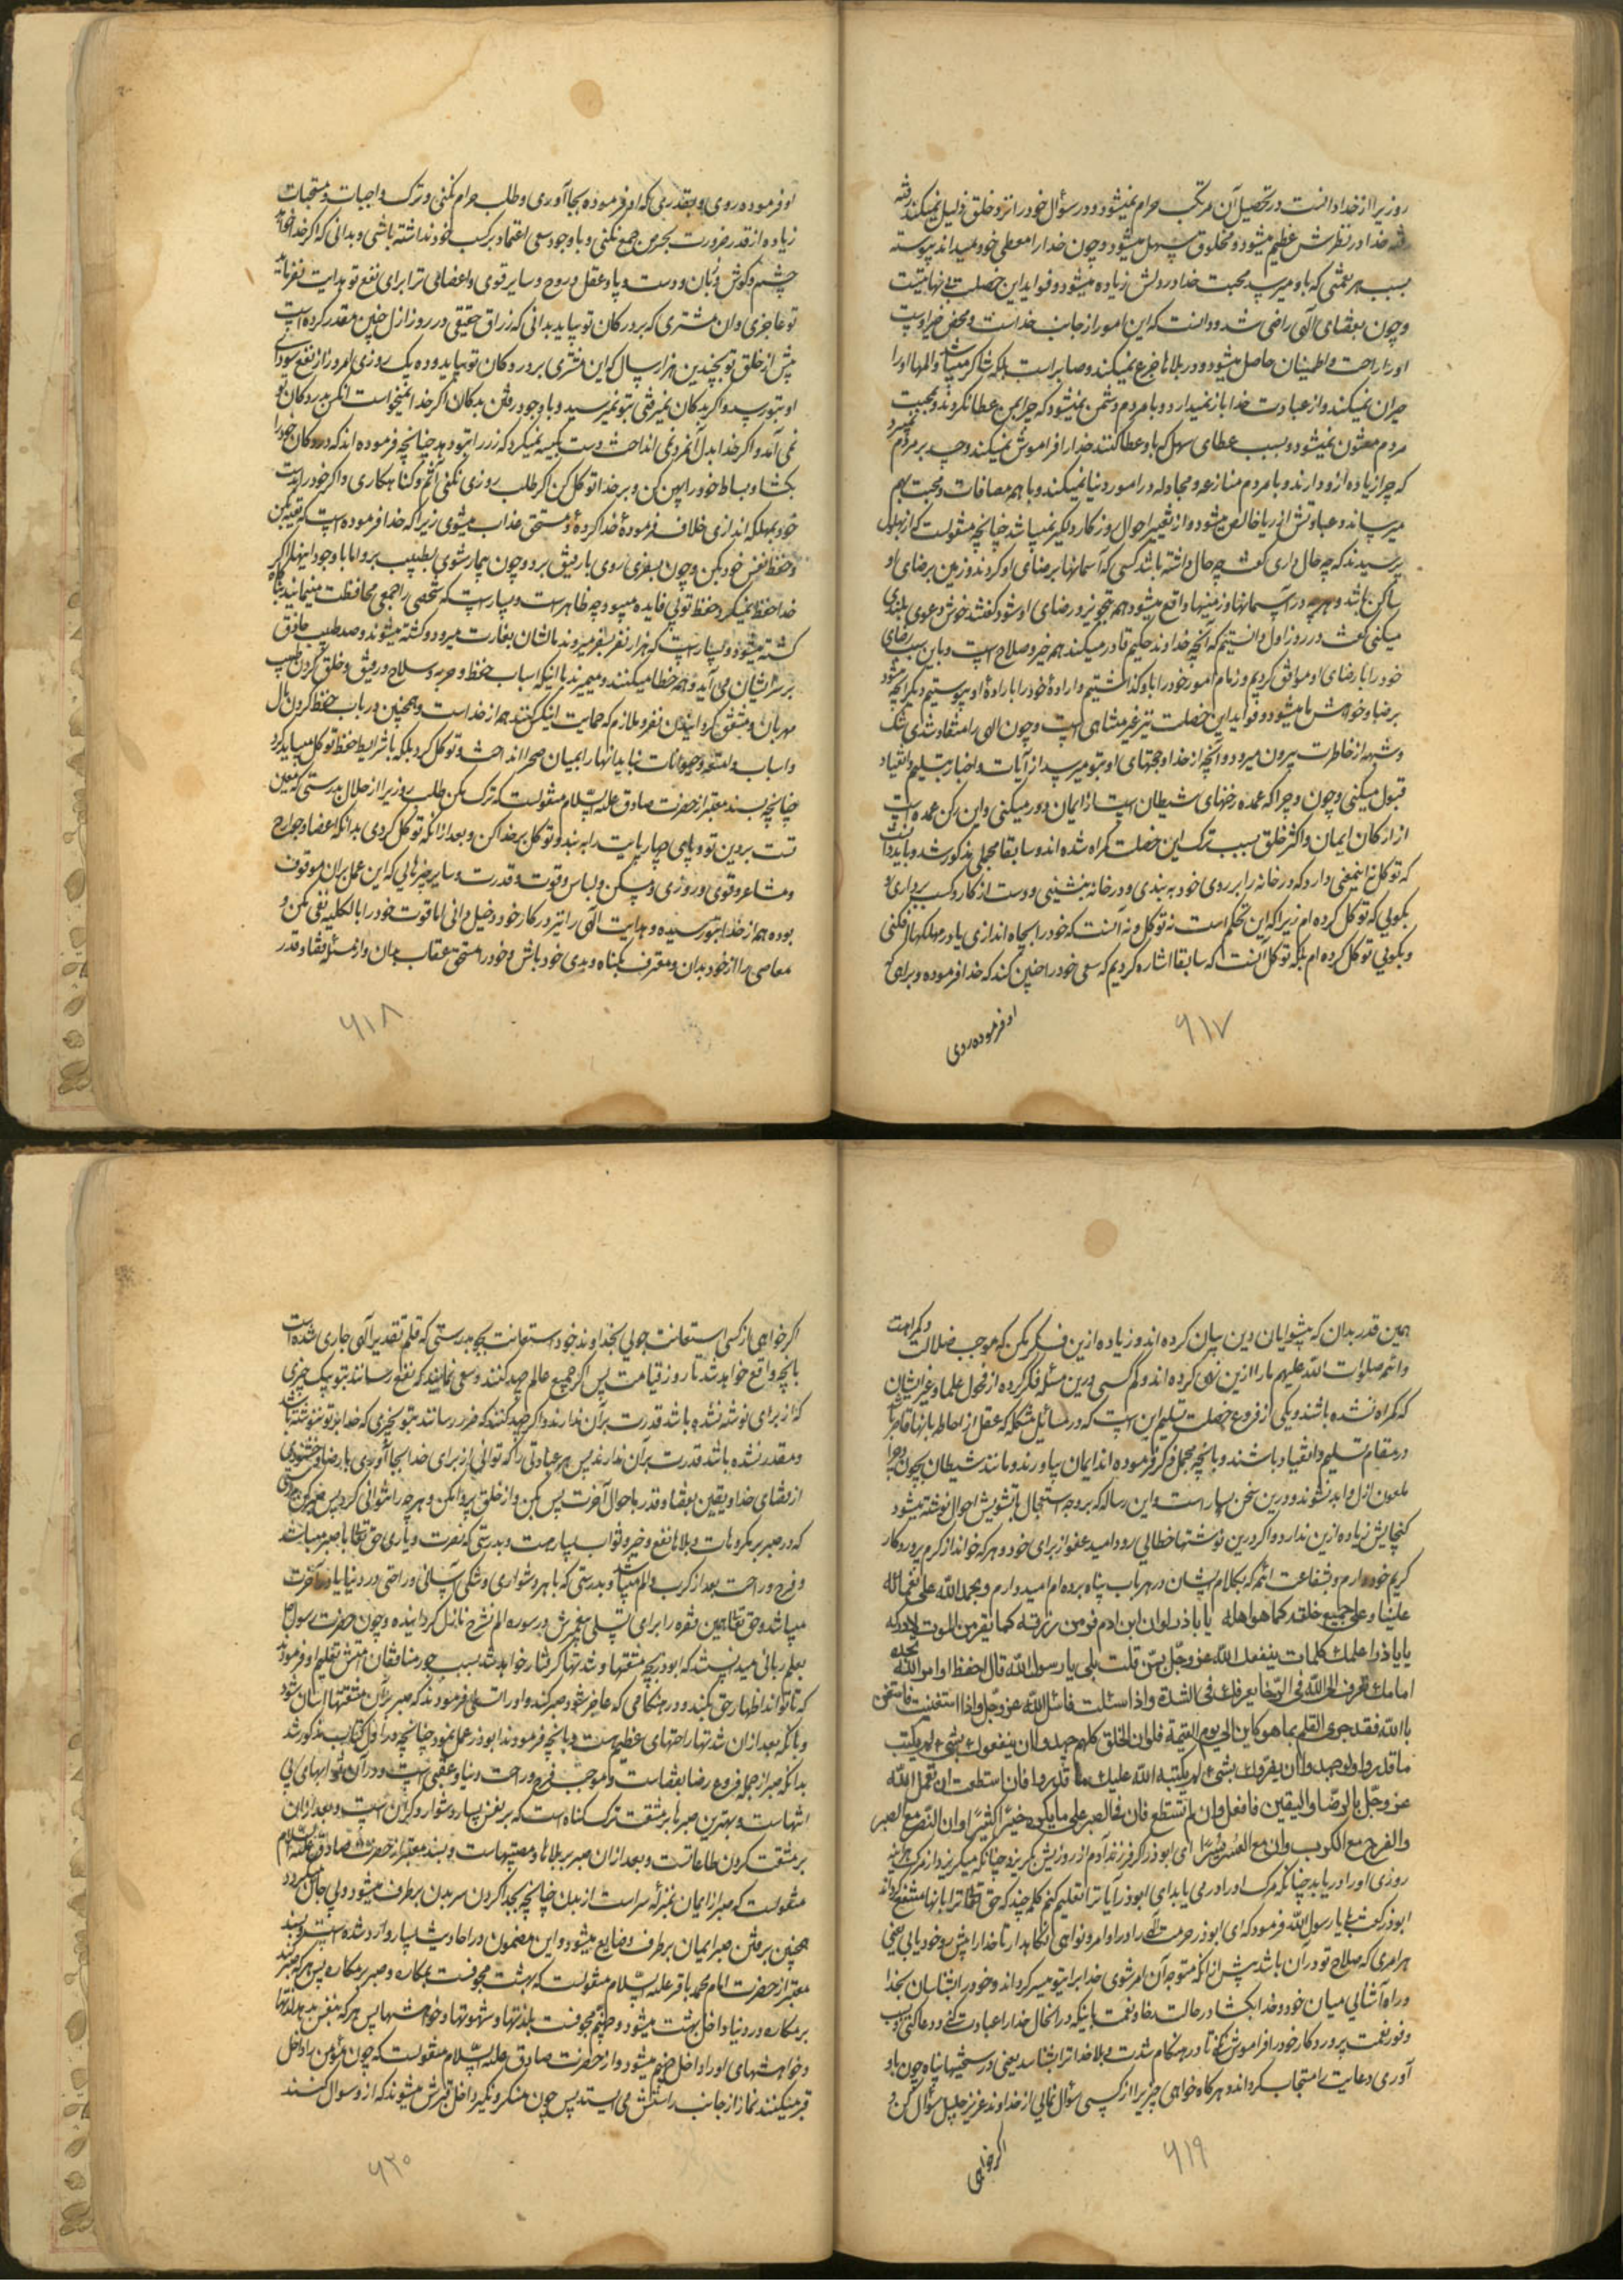 روزیرا از خدا دانست در تحصیل آن مرتکب حرام نمیشود و در سؤال خود را نزد خلق ذلیل نمیکند رفته
رفته خدا در نظرش عظیم میشود و مخلوق سهل میشود و چون خدا را معطی خود میداند پیوسته
بسبب هر نعمتی که باو میرسد محبت خدا در دلش زیاده میشود و فواید این خصلت بی نهایتست
و چون بقضای الهی راضی شد و دانست که این امور از جانب خداست و محض خیر اوست
او را راحت و اطمینان حاصل میشود و در بلاها جزع نمیکند و صابر است بلکه شاکر میباشد و المها او را
حیران نمیکند و از عبادت خدا باز نمیدارد و با مردم دشمن نمیشود که چرا بمن عطا نکردند و بمحبت
مردم مفتون نمیشود و بسبب عطای سهل که باو عطا کنند خدا را فراموش نمیکند و حسد بر مردم نمیبرد
که چرا زیاده از او دارند و با مردم منازعه و مجادله در امور دنیا نمیکند و با هم مصافات و محبت بهم
میرساند و عباداتش از ریا خالص میشود و از تغییر احوال روزگار دلگیر نمیباشد چنانچه منقولست که از بهلول
پرسیدند که چه حال داری گفت چه حال داشته باشد کسی که آسمانها برضای او گردند و زمین برضای او
ساکن باشد و هر چه در آسمانها و زمینها واقع میشود هم بتجویز و رضای او شود گفتند خوش دعوی بلندی
میکنی گفت در روز اول دانستیم که آنچه خداوند حکیم قادر میکند هم خیر و صلاح است و باین سبب رضای
خود را با رضای او موافق کردیم و زمام امور خود را باو گذاشتیم و ارادهٔ خود را بارادهٔ او پیوستیم دیگر آنچه میشود
برضا و خواهش ما میشود و فواید این خصلت نیز غیر متناهی است و چون الهی را منقاد شدی شک
و شبهه از خاطرت بیرون میرود و آنچه از خدا و حجتهای او بتو میرسد از آیات و اخبار بتسلیم و انقیاد
قبول میکنی و چون و چرا که عمده رخنهای شیطان است از ایمان دور میکنی و این رکن عمده است
از ارکان ایمان و اکثر خلق بسبب ترک این خصلت گمراه شده اند و سابقا مجملی مذکور شد و باید دانست
که توکل نه اینمعنی دارد که در خانه را بر روی خود به بندی و در خانه بنشینی و دست از کار و کسب برداری و
بگویی که توکل کرده ام زیرا که این تحکم است نه توکل و نه آنست که خود را بچاه اندازی یا در مهلکها افکنی
و بگویی توکل کرده ام بلکه توکل آنست که سابقا اشاره کردیم که سعی خود را چنین کند که خدا فرموده و براهی که
او فرموده روی
۶۱۷
او فرموده روی و بقدری که امر فرموده بجا آوری و طلب حرام نکنی و ترک واجبات و مستحبات
زیاده از قدر ضرورت بحرص جمع نکنی و با وجود سعی اعتماد بر کسب خود نداشته باشی و بدانی که اگر خدا خواهد
چشم و گوش و زبان و دست و پا و عقل و روح و سایر قوی و اعضای ترا برای نفع تو هدایت نفرماید
تو عاجزی و ان مشتری که بر در کان تو بیاید بدانی که رزاق حقیقی در روز ازل چنین مقدر کرده است
پیش از خلق تو بچندین هزار سال که این مشتری بر در دکان تو بیاید و ده یک روزی امروز از نفع سودای
او بتو رسد و اگر بدکان نمیرفتی بتو نمیرسید و با وجود رفتن بدکان اگر خدا نمیخواست انکس بدر دکان تو
نمی آمد و اگر خدا بدل آنمرد نمی انداخت دست بکیسه نمیکرد که زر را بتو دهد چنانچه فرموده اند که در دکان خود را
بکشا و بساط خود را پهن کن و بر خدا توکل کن اگر طلب روزی نکنی آثم و گناهکاری و اگر خود را بدست
خود بمهلکه اندازی خلاف فرمودهٔ خدا کردهٔ و مستحق عذاب میشوی زیرا که خدا فرموده است که تقیه کن
و حفظ نفس خود بکن و چون بسفری روی با رفیق برو و چون بیمار شوی بطبیب برو اما با وجود اینها اگر
خدا حفظ نمیکرد حفظ تو بی فایده میبود چه ظاهر است و بسیار است که شخصی را جمعی محافظت مینمایند و ناگاه
کشته میشود و بسیار است که هزار نفر بسفر میروند مالشان بغارت میرود و کشته میشوند و صد طبیب حاذق
بر سر ایشان می آید و همه خطا میکنند و میمیرند با اینکه اسباب حفظ و حربه و سلاح و رفیق و خلق کردن طبیب
مهربان و مشفق گردانیدن نفر و ملازم که حمایت اینکس کنند هم از خداست و همچنین در باب حفظ کردن مال
و اسباب و امتعه و حیوانات نباید انها را بمیان صحرا انداخت و توکل کرد بلکه با شرایط حفظ توکل میباید کرد
چنانچه بسند معتبر از حضرت صادق علیه السّلام منقولست که ترک مکن طلب روزیرا از حلال بدرستی که معین
تست بر دین تو و پای چهار پایت را به بند و توکل بر خدا کن و بعد از آنکه توکل کردی بدانکه اعضا و جوارح
و مشاعر و قوی و روزی و مسکن و لباس و قوت و قدرت و سایر چیزهائی که این عمل بر ان موقوف
بوده هم از خدا بتو رسیده و هدایت الهی را نیز در کار خود دخیل دانی اما قوت خود را بالکلیه نفی مکن و
معاصی را از خود بدان و معترف بگناه و بدی خود باش و خود را مستحق عقاب بدان و از مسئله قضا و قدر
۶۱۸
همین قدر بدان که پیشوایان دین بیان کرده اند و زیاده ازین فکر مکن که موجب ضلالت و گمراهیست
و ائمه صلوات الله علیهم ما را ازین نهی کرده اند و کم کسی درین مسئله فکر کرده از فحول علما و غیر ایشان
که گمراه نشده باشند و یکی از فروع خصلت تسلیم این است که در مسائل مشکله که عقل از احاطه بانها قاصر باشد
در مقام تسلیم و انقیاد باشند و بانچه مجمل ذکر فرموده اند ایمان بیاورند و مانند شیطان بچون و چرا
ملعون ازل و ابد نشوند و درین سخن بسیار است و این رساله که بر وجه استعجال با تشویش احوال نوشته میشود
گنجایش زیاده ازین ندارد و اگر درین نوشتها خطائی رود امید عفو از برای خود و هر که خواند از کرم پروردگار
کریم خود دارم و بشفاعت ائمه که بکلام ایشان در هر باب پناه برده ام امیدوارم و بحمد الله علی نعمائه
علینا و علی جمیع خلقه کما هو اهله یا باذر لو ان ابن ادم فر من رزقه کما یفر من الموت لادرکه
یا باذر اعلمک کلمات ینفعک الله عز و جل بهن قلت بلی یا رسول الله قال احفظ اوامر الله تجده
امامک تعرف الی الله فی الرخا یعرفک فی الشدة و اذا سئلت فاسئل الله عز و جل و اذا استعنت فاستعن
باالله فقد جری القلم بما هو کاین الی یوم القیمة فلو ان الخلق کلهم جهدوا ان ینفعوک بشیء لم یکتب
ما قدروا و لو جهدوا ان یضروک بشیء لم یکتبه الله علیک ما قدروا فان استطعت ان تعمل الله
عز و جل بالرضا و الیقین فافعل و ان لم تستطع فان فی الصبر علی ما یکره خیرا کثیرا و ان النصر مع الصبر
و الفرج مع الکرب و ان مع العسر یسرا ای ابوذر اگر فرزند آدم از روزیش بگریزد چنانکه میگریزد از مرگ هراینه
روزی او را دریابد چنانکه مرگ او را در می یابد ای ابوذر آیا ترا تعلیم کنم کلمه چند که حق تعالی ترا بانها منتفع گرداند
ابوذر گفت بلی یا رسول الله فرمود که ای ابوذر حرمت الهی را در اوامر و نواهی نگاهدار تا خدا را پیش رو خود یابی یعنی
هر امری که صلاح تو در آن باشد پیش از انکه متوجه آن امر شوی خدا برا بتو میسر گرداند و خود را بشناسان بخدا
و راه آشنائی میان خود و خدا بکشا در حالت رخا و نعمت باینکه در انحال خدا را عبادت کنی و دعا کنی و بسبب
وفور نعمت پروردگار خود را فراموش نکنی تا در هنگام شدت و بلا خدا ترا بشناسد یعنی در سختیها پناه چون باو
آوری دعایت را مستجاب گرداند و هر گاه خواهی چیزیرا از کسی سؤال نمائی از خداوند عزیز جلیل سؤال کن و
اگر خواهی
۶۱۹
اگر خواهی از کسی استعانت جوئی بخداوند خود استعانت بجو بدرستی که قلم تقدیر الهی جاری شده است
بانچه واقع خواهد شد تا روز قیامت پس اگر جمیع عالم جهد کنند و سعی نمایند که نفع رسانند بتو بیک چیزی
که از برای تو نوشته نشده باشد قدرت بر آن ندارند و اگر جهد کنند که ضرر رسانند بتو بچیزی که خدا بر تو ننوشته باشد
و مقدر نشده باشد قدرت بر آن ندارند پس هر عبادتی را که توانی از برای خدا بجا آوری با رضا و خشنودی
از قضای خدا و یقین بقضا و قدر و احوال آخرت پس بکن و از خلق پروا مکن و هر چه را نتوانی کرد پس صبر کن
که در صبر بر مکروهات و بلاها نفع و خیر و ثواب بسیار هست و بدرستی که نصرت و یاری حق تعالی با صبر میباشد
و فرح و راحت بعد از کرب و الم میباشد و بدرستی که با هر دشواری و مشکل آسانی و راحتی در دنیا یا در آخرت
میباشد و حق تعالی همین فقره را برای تسلی پیغمبرش در سوره الم نشرح نازل گردانیده و چون حضرت رسول
بعلم ربانی میدانست که ابوذر بچه مشقتها و شدتها گرفتار خواهد شد بسبب جور منافقان امتش تعلیم او فرمود
که تا تواند اظهار حق بکند و در هنگامی که عاجز شود صبر کند و او را تسلی فرمودند که صبر بر آن مشقتها آسان شود
و بانکه بعد از ان شدتها راحتهای عظیم هست و بانچه فرمودند ابوذر عمل نمود چنانچه در اول کتاب مذکور شد
بدانکه صبر از جمله فروع رضا بقضاست و موجب فرح و راحت دنیا و عقبی است و در آن ثوابهای بی
انتهاست و بهترین صبرها بر مشقت ترک گناه است که بر نفس بسیار دشوار و گران است و بعد از ان
بر مشقت کردن طاعاتست و بعد از ان صبر بر بلاها و مصیبتهاست و بسند معتبر از حضرت صادق علیه السلام
منقولست که صبر از ایمان بمنزلهٔ سر است از بدن چنانچه بجدا کردن سر بدن بر طرف میشود و بی جان میگردد
همچنین برفتن صبر ایمان بر طرف و ضایع میشود و این مضمون در احادیث بسیار وارد شده است و بسند
معتبر از حضرت امام محمد باقر علیه السّلام منقولست که بهشت محفوفست بمکاره و صبر بر مکاره پس هر که صبر کند
بر مکاره در دنیا داخل بهشت میشود و جهنم محفوفست بلذتها و شهوتها و خواهشها پس هر که بنفس بدهد لذتها
و خواهشهای او را داخل جهنم میشود و از حضرت صادق علیه السّلام منقولست که چون مؤمن را داخل
قبر میکنند نماز از جانب راستش می ایستد پس چون منکر و نکیر داخل قبرش میشوند که از او سوال کنند
۶۲۰